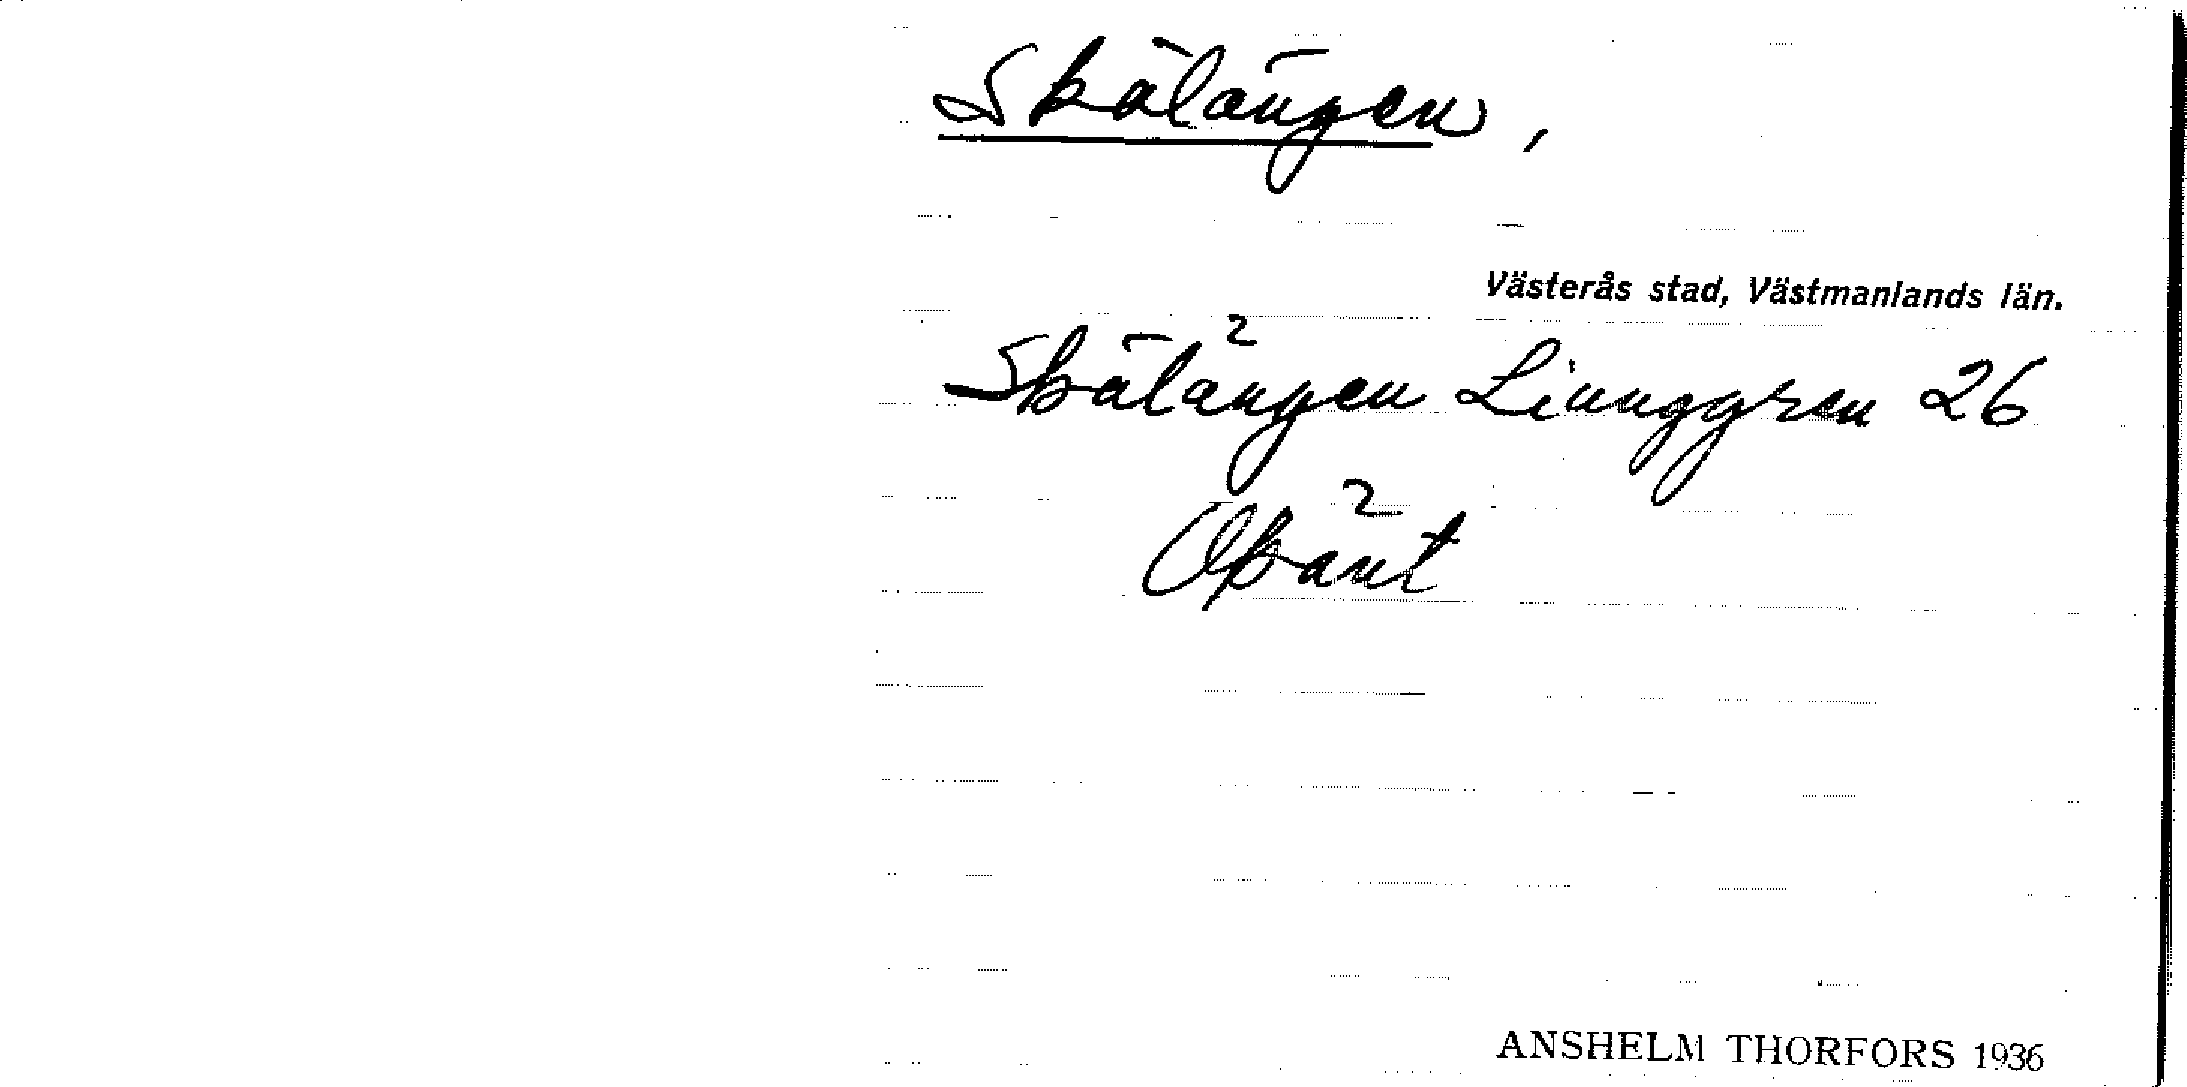 Skälängen,
Västerås stad, Västmanlands län.
Skälängen Linnggren 26
Okänt
ANSHELM THORFORS 1936